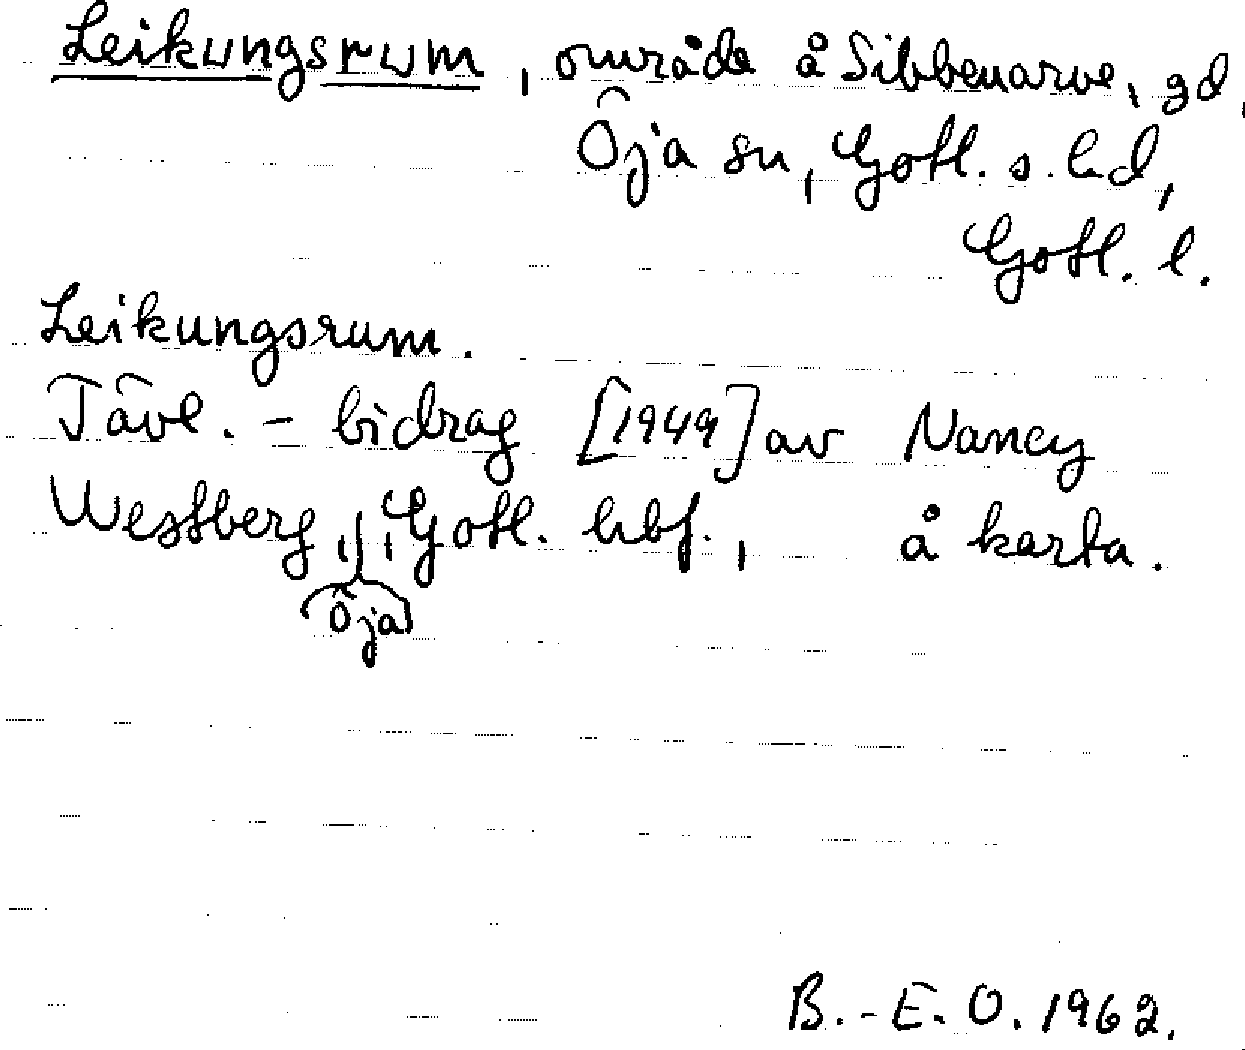 Leikungsrum, område å Sibbenarve, gd,
Öja sn, Gotl. s. hd,
Gotl. l.
Leikungsrum.
Tävl. - bidrag [1949] av Nancy
Westberg, Öja, Gotl. hbf., å karta.
B.-E. O. 1962.